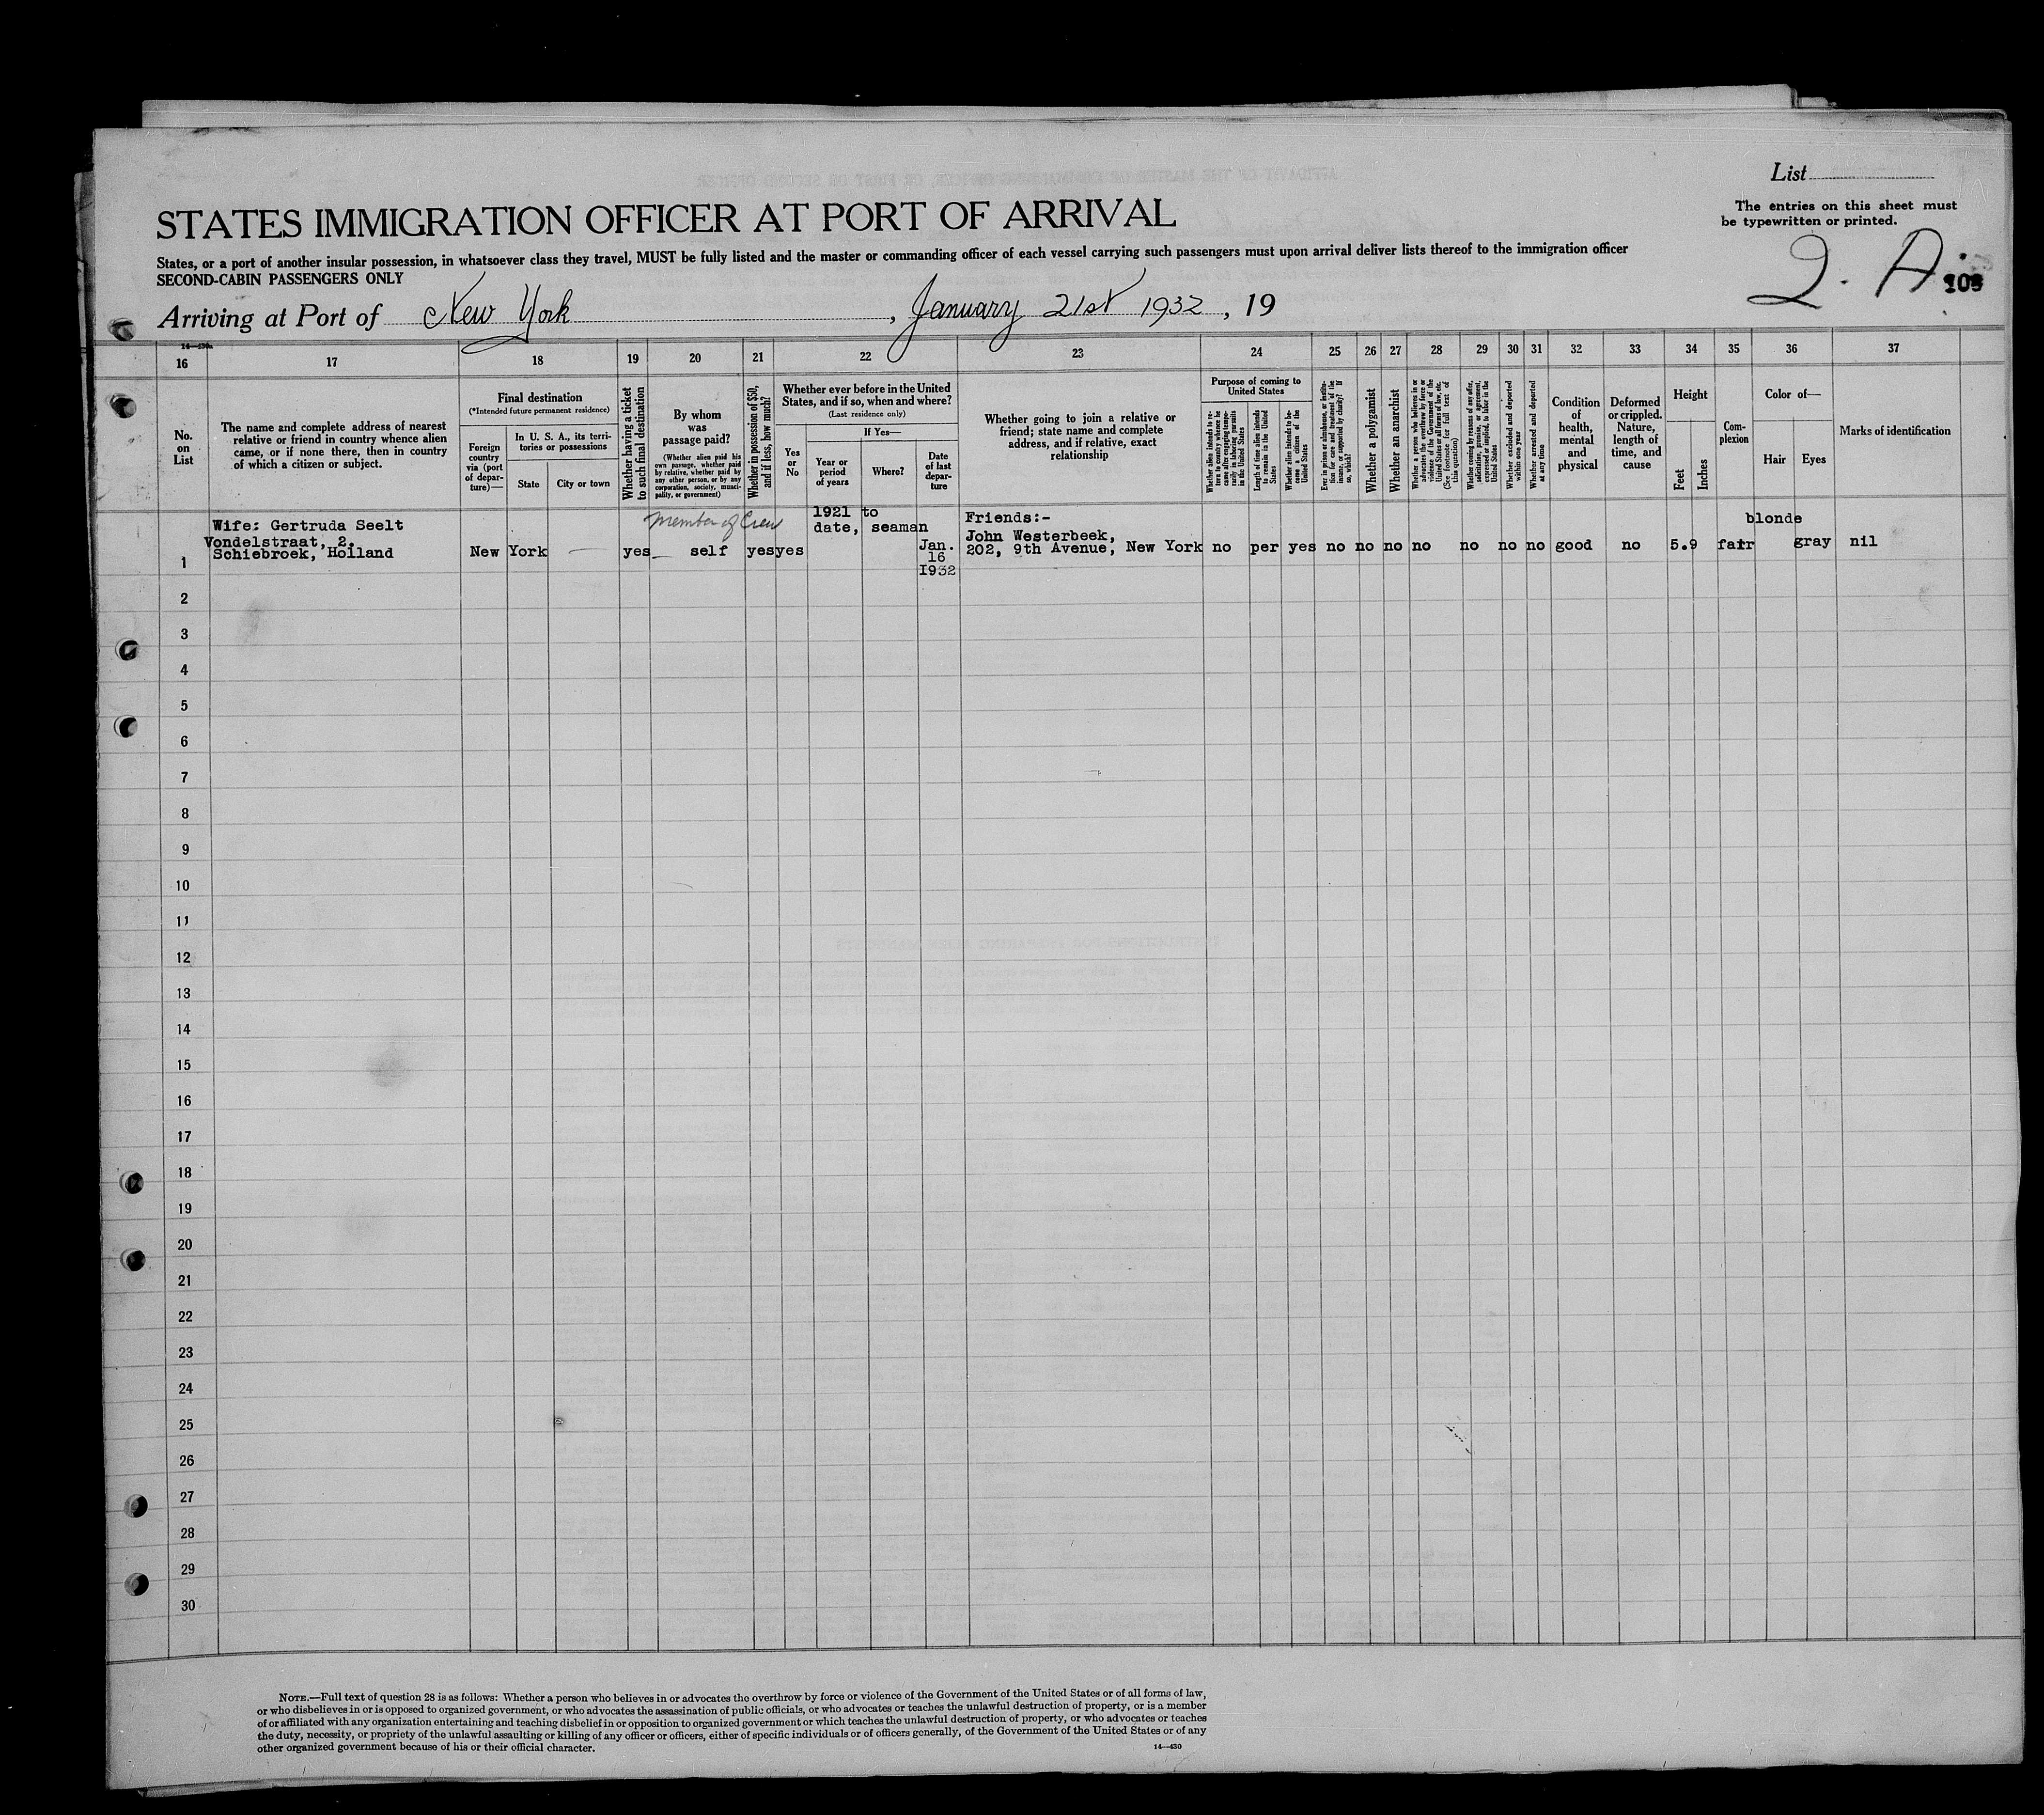 List
STATES IMMIGRATION OFFICER AT PORT OF ARRIVAL
The entries on this sheet must
be typewritten or printed.
States, or a port of another insular possession, in whatsoever class they travel, MUST be fully listed and the master or commanding officer of each vessel carrying such passengers must upon arrival deliver lists thereof to the immigration officer
SECOND-CABIN PASSENGERS ONLY
2. A. 105
Arriving at Port of New York, January 21st 1932, 19
14—430
16 17 18 19 20 21 22 23 24 25 26 27 28 29 30 31 32 33 34 35 36 37
No.
on
List
The name and complete address of nearest
relative or friend in country whence alien
came, or if none there, then in country
of which a citizen or subject.
Final destination
(*Intended future permanent residence)
Foreign
country
via (port
of depar-
ture)—
In U. S. A., its terri-
tories or possessions
State
City or town
Whether having a ticket
to such final destination
By whom
was
passage paid?
(Whether alien paid his
own passage, whether paid
by relative, whether paid by
any other person, or by any
corporation, society, munici-
pality, or government)
Whether in possession of $50,
and if less, how much?
Whether ever before in the United
States, and if so, when and where?
(Last residence only)
Yes
or
No
If Yes—
Year or
period
of years
Where?
Date
of last
depar-
ture
Whether going to join a relative or
friend; state name and complete
address, and if relative, exact
relationship
Purpose of coming to
United States
Whether alien intends to re-
turn to country whence he
came after engaging tempo-
rarily in laboring pursuits
in the United States
Length of time alien intends
to remain in the United
States
Whether alien intends to be-
come a citizen of the
United States
Ever in prison or almshouse, or institu-
tion for care and treatment of the
insane, or supported by charity? If
so, which?
Whether a polygamist
Whether an anarchist
Whether a person who believes in or
advocates the overthrow by force or
violence of the Government of the
United States or all forms of law, etc.
(See footnote for full text of
this question)
Whether coming by reason of any offer,
solicitation, promise, or agreement,
expressed or implied, to labor in the
United States
Whether excluded and deported
within one year
Whether arrested and deported
at any time
Condition
of
health,
mental
and
physical
Deformed
or crippled.
Nature,
length of
time, and
cause
Height
Feet
Inches
Com-
plexion
Color of—
Hair
Eyes
Marks of identification
Member of Crew
1 Wife: Gertruda Seelt
Vondelstraat, 2.
Schiebroek, Holland
New York — yes self yes yes
1921 to
date, seaman
Jan.
16
1932
Friends:-
John Westerbeek,
202, 9th Avenue, New York
no per yes no no no no no no no good no 5.9 fair blonde gray nil
2
3
4
5
6
7
8
9
10
11
12
13
14
15
16
17
18
19
20
21
22
23
24
25
26
27
28
29
30
NOTE.—Full text of question 28 is as follows: Whether a person who believes in or advocates the overthrow by force or violence of the Government of the United States or of all forms of law,
or who disbelieves in or is opposed to organized government, or who advocates the assassination of public officials, or who advocates or teaches the unlawful destruction of property, or is a member
of or affiliated with any organization entertaining and teaching disbelief in or opposition to organized government or which teaches the unlawful destruction of property, or who advocates or teaches
the duty, necessity, or propriety of the unlawful assaulting or killing of any officer or officers, either of specific individuals or of officers generally, of the Government of the United States or of any
other organized government because of his or their official character.
14—430